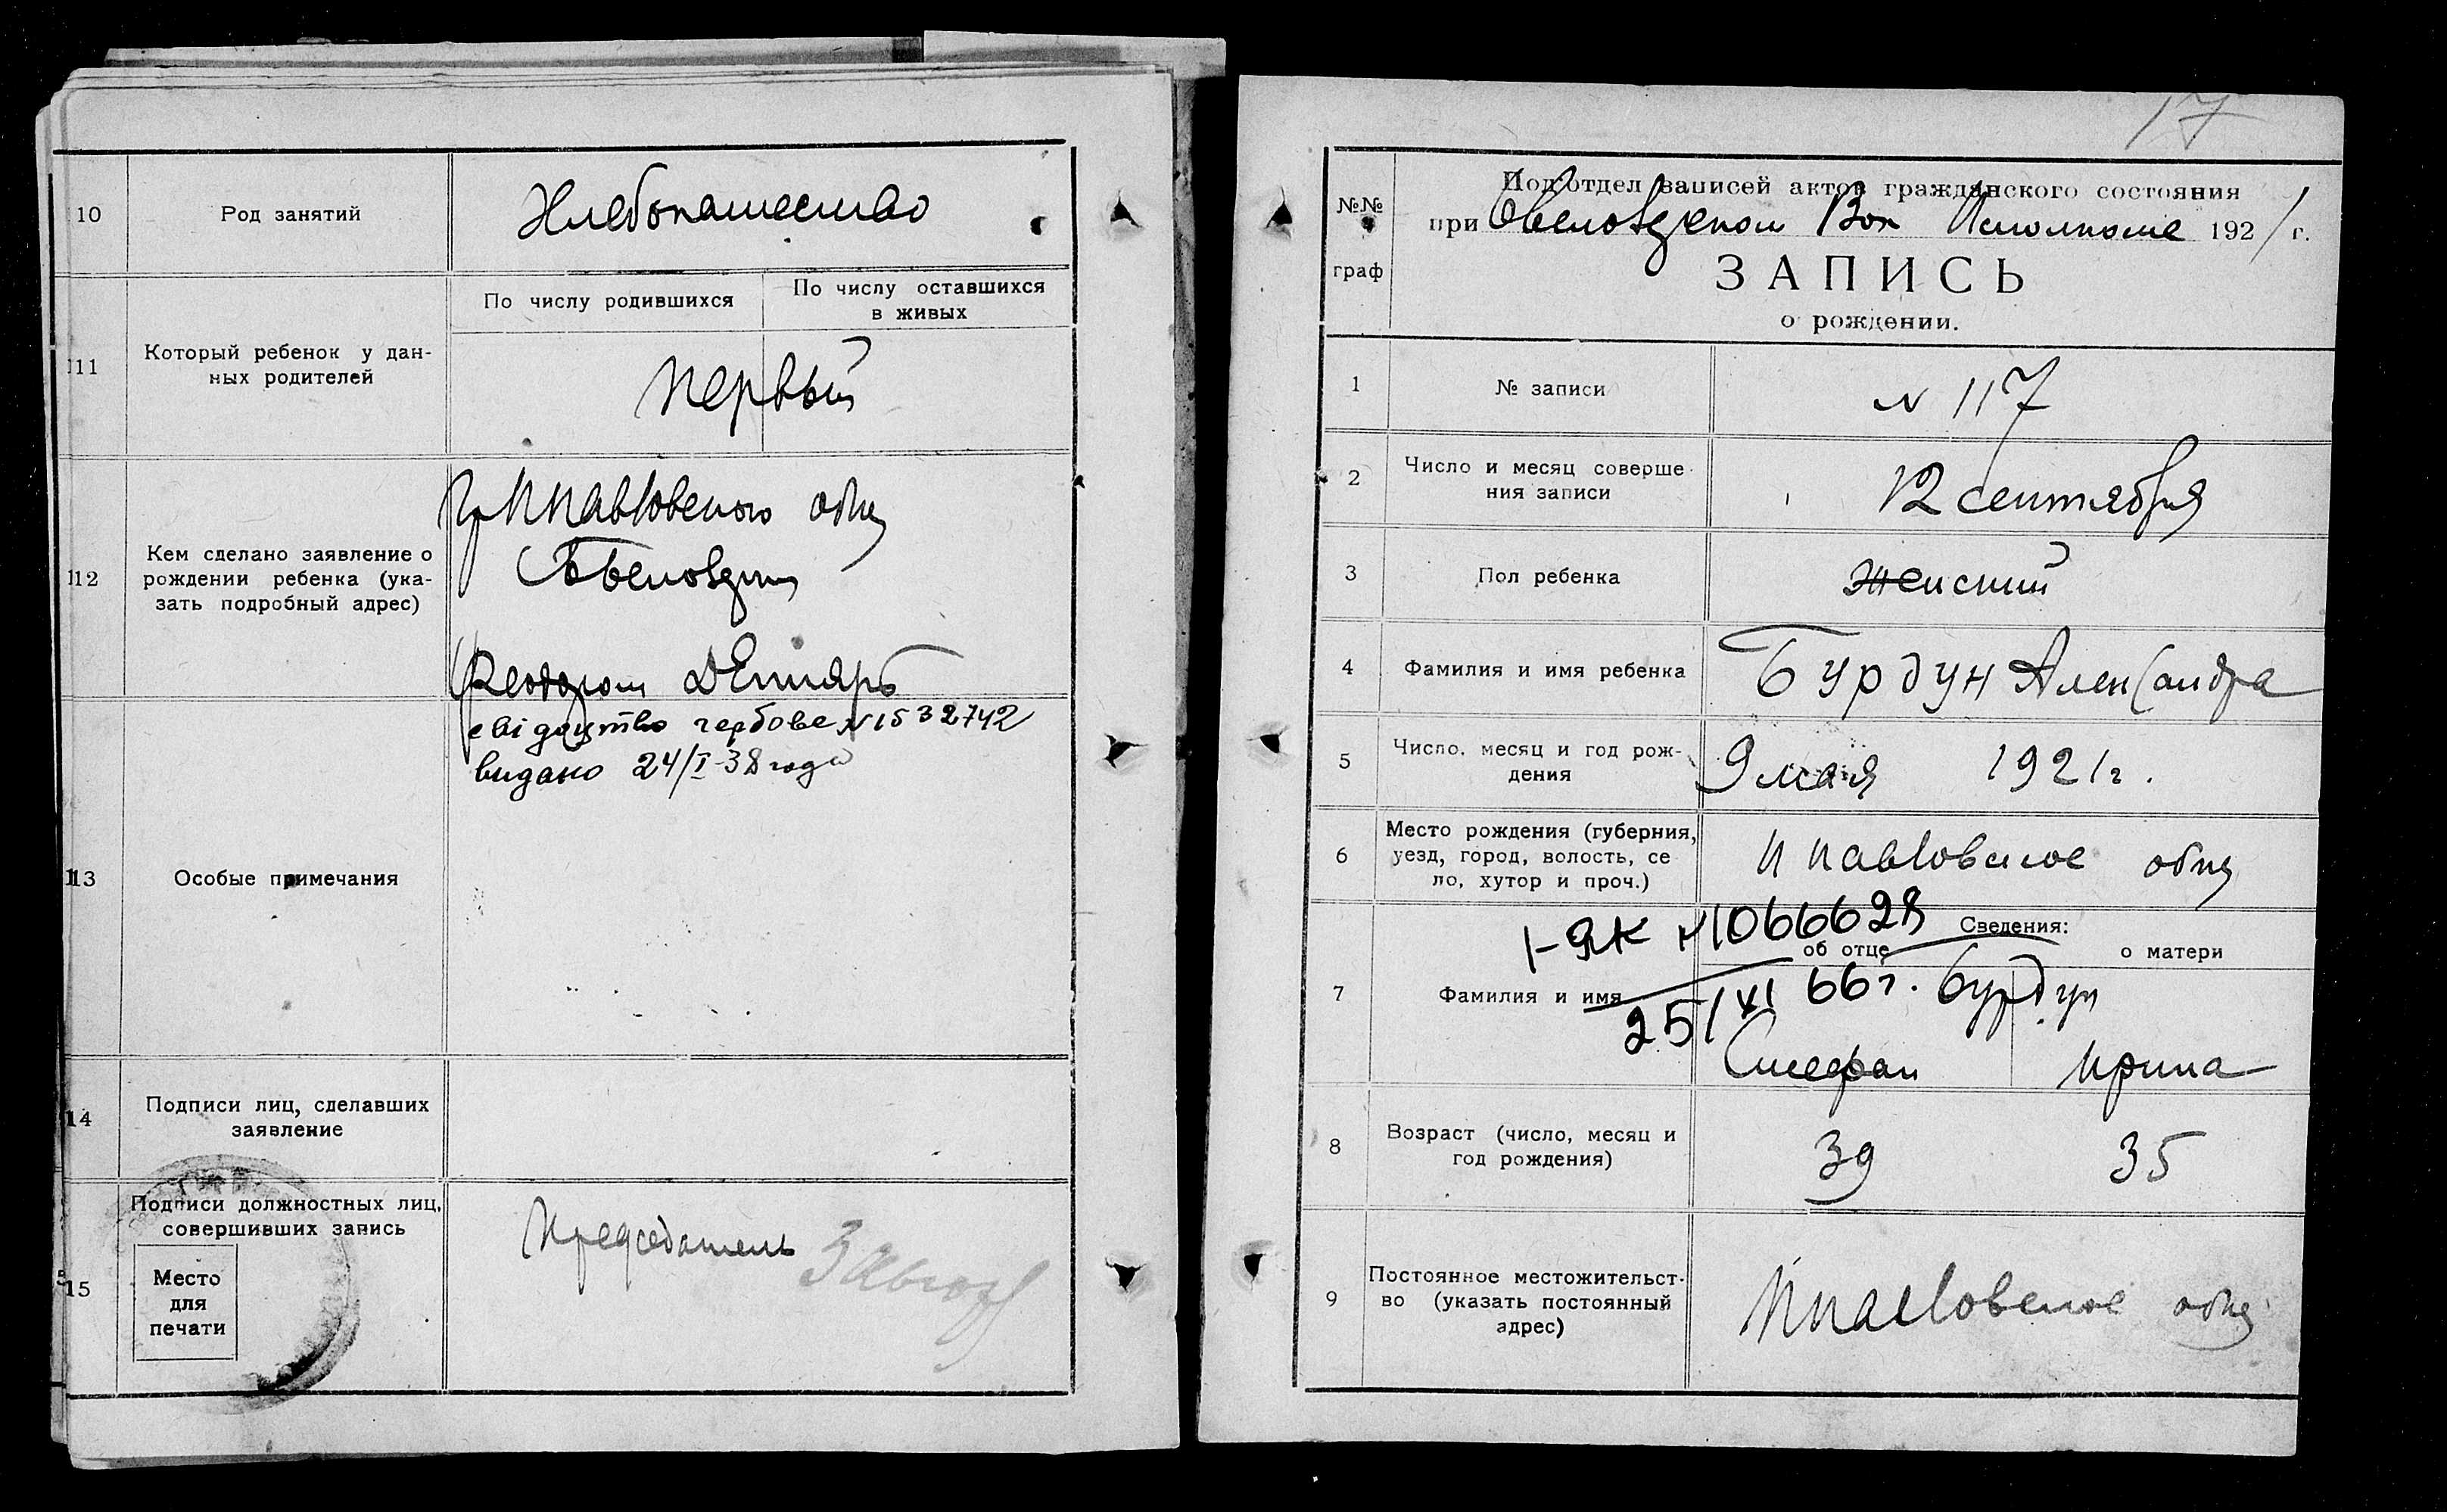 10
Род занятий
Хлебопашество
11
Который ребенок у дан-
ных родителей
По числу родившихся
По числу оставшихся
в живых
первый
12
Кем сделано заявление о
рождении ребенка (ука-
зать подробный адрес)
Гр
общ
Феодором
13
Особые примечания
свідоцтво гербове N 1532742
видано 24/I-38 года
14
Подписи лиц, сделавших
заявление
15
Подписи должностных лиц,
совершивших запись
Место
для
печати
Председатель
17
№№
граф
Подотдел записей актов гражданского состояния
при Вол Исполкоме 1921 г.
ЗАПИСЬ
о рождении.
1
№ записи
N 117
2
Число и месяц соверше-
ния записи
12 сентября
3
Пол ребенка
Женский
4
Фамилия и имя ребенка
Бурдун Александра
5
Число, месяц и год рож-
дения
9 мая 1921 г.
6
Место рождения (губерния,
уезд, город, волость, се
ло, хутор и проч.)
общ
I-ЯК N 1066628
Сведения:
об отце
о матери
7
Фамилия и имя
25/XI 66 г. Бурдун
Стефан
Ирина
8
Возраст (число, месяц и
год рождения)
39
35
9
Постоянное местожительст-
во (указать постоянный
адрес)
общ